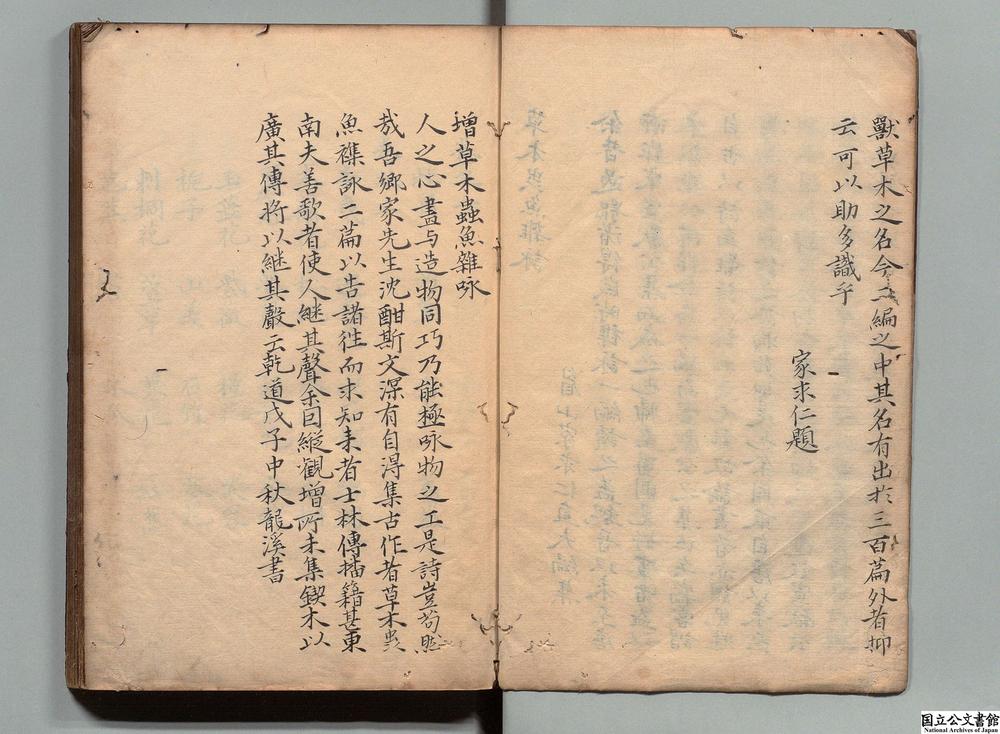 獸草木之名今二編之中其名有出於三百篇外者抑
云可以助多識乎
家求仁題
增草木蟲魚雜咏
人之心畫与造物同巧乃能極咏物之工是詩豈苟然
哉吾鄉家先生沈酣斯文深有自得集古作者草木虫
魚襍詠二篇以告諸徃而求知耒者士林傳播籍甚東
南夫善歌者使人継其聲余因縱觀增所未集鋟木以
廣其傳将以継其聲云乾道戊子中秋龍溪書
国立公文書館
National Archives of Japan